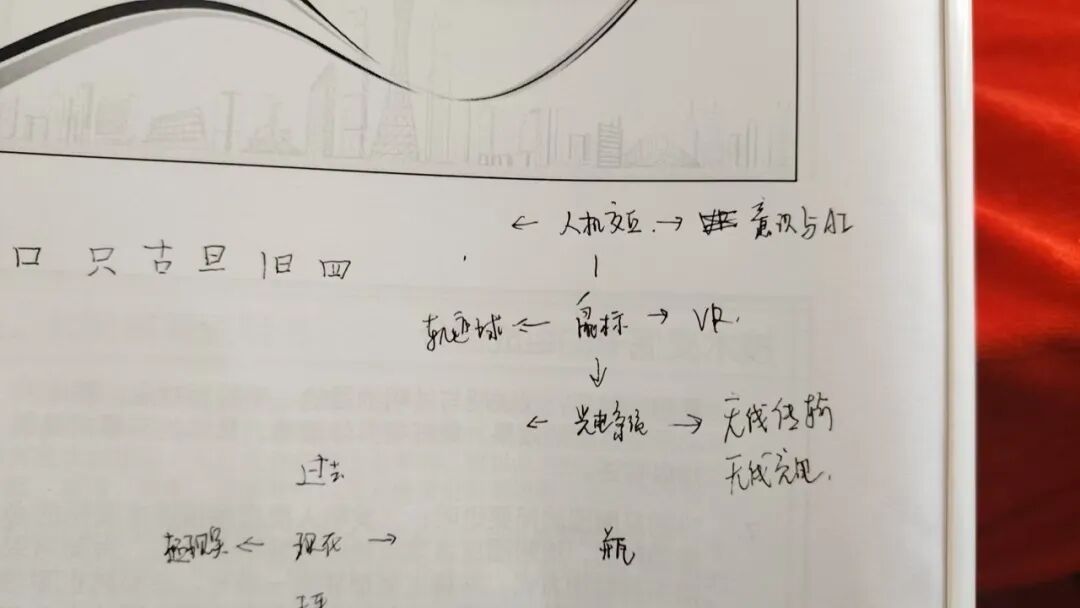 ← 人机交互 → 意识与AI
口 只 古 旦 旧 四
轨迹球 ← 鼠标 → VR.
← 光电系统 → 无线传输
无线充电.
过去
超现实 ← 现在 →
瓶